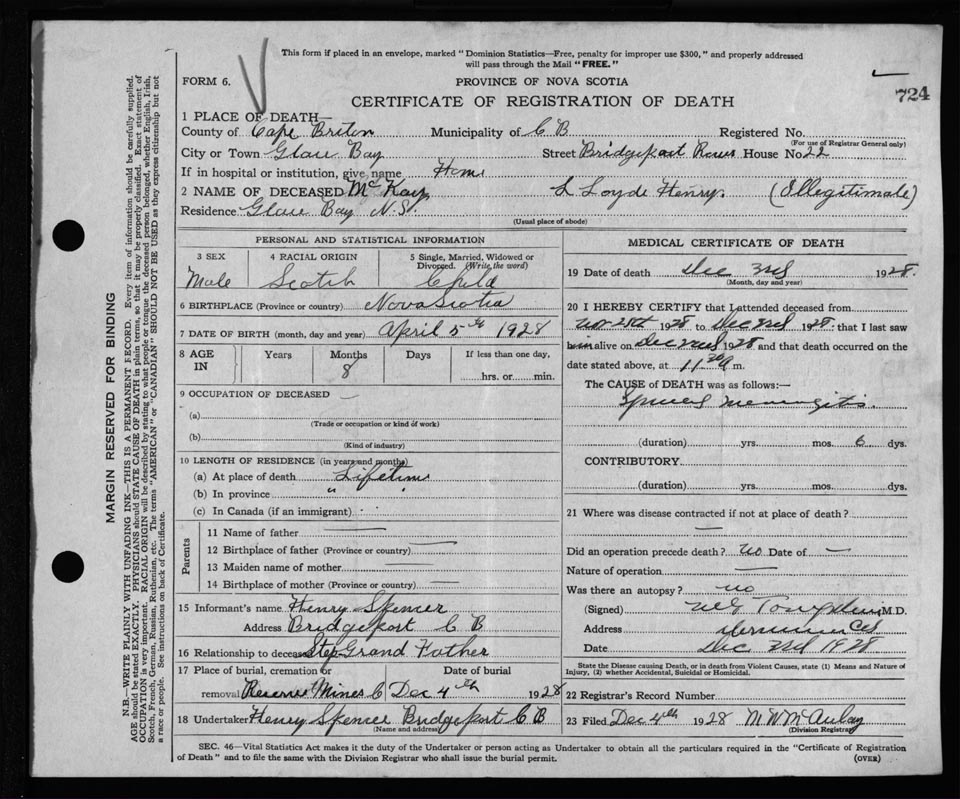 This form if placed in an envelope, marked "Dominion Statistics—Free, penalty for improper use $300," and properly addressed
will pass through the Mail "FREE."
FORM 6.
PROVINCE OF NOVA SCOTIA
724
CERTIFICATE OF REGISTRATION OF DEATH
1 PLACE OF DEATH—
County of Cape Briton Municipality of C B Registered No.
(For use of Registrar General only)
City or Town Glace Bay Street Bridgeport House No. 22
If in hospital or institution, give name Home
2 NAME OF DECEASED McKay L Loyde Henry. (Illegitimate)
Residence Glace Bay N.S.
(Usual place of abode)
PERSONAL AND STATISTICAL INFORMATION
3 SEX Male
4 RACIAL ORIGIN Scotch
5 Single, Married, Widowed or Divorced. (Write the word) Child
6 BIRTHPLACE (Province or country) Nova Scotia
7 DATE OF BIRTH (month, day and year) April 5th 1928
8 AGE IN Years Months 8 Days If less than one day, hrs. or min.
9 OCCUPATION OF DECEASED —
(a)
(Trade or occupation or kind of work)
(b)
(Kind of industry)
10 LENGTH OF RESIDENCE (in years and months)
(a) At place of death Lifetime
(b) In province "
(c) In Canada (if an immigrant)
Parents
11 Name of father —
12 Birthplace of father (Province or country) —
13 Maiden name of mother —
14 Birthplace of mother (Province or country) —
15 Informant's name Henry Spencer
Address Bridgeport C B
16 Relationship to deceased Step-Grand Father
17 Place of burial, cremation or removal Reserve Mines C Date of burial Dec 4th 1928
18 Undertaker Henry Spencer Bridgeport C B
(Name and address)
MEDICAL CERTIFICATE OF DEATH
19 Date of death Dec 3rd 1928.
(Month, day and year)
20 I HEREBY CERTIFY that I attended deceased from
1928 to Dec 1928: that I last saw
him alive on Dec 1928 and that death occurred on the
date stated above, at 11 m.
The CAUSE of DEATH was as follows:—
Spinal meningitis.
(duration) yrs. mos. 6 dys.
CONTRIBUTORY
(duration) yrs. mos. dys.
21 Where was disease contracted if not at place of death?
—
Did an operation precede death? no Date of —
Nature of operation —
Was there an autopsy? no
(Signed) M.D.
Address Dominion CB
Date Dec 3rd 1928
State the Disease causing Death, or in death from Violent Causes, state (1) Means and Nature of
Injury, (2) whether Accidental, Suicidal or Homicidal.
22 Registrar's Record Number
23 Filed Dec 4th 1928 M W McAulay
(Division Registrar)
SEC. 46—Vital Statistics Act makes it the duty of the Undertaker or person acting as Undertaker to obtain all the particulars required in the "Certificate of Registration
of Death" and to file the same with the Division Registrar who shall issue the burial permit.
(OVER)
MARGIN RESERVED FOR BINDING
N.B.—WRITE PLAINLY WITH UNFADING INK—THIS IS A PERMANENT RECORD. Every item of information should be carefully supplied.
AGE should be stated EXACTLY. PHYSICIANS should STATE CAUSE OF DEATH in plain terms, so that it may be properly classified. Exact statement of
OCCUPATION is very important. RACIAL ORIGIN will be described by stating to what people or tongue the deceased person belonged, whether English, Irish,
Scotch, French, German, Russian, Ruthenian, etc. The terms "AMERICAN" or "CANADIAN" SHOULD NOT BE USED as they express citizenship but not
a race or people. See instructions on back of Certificate.